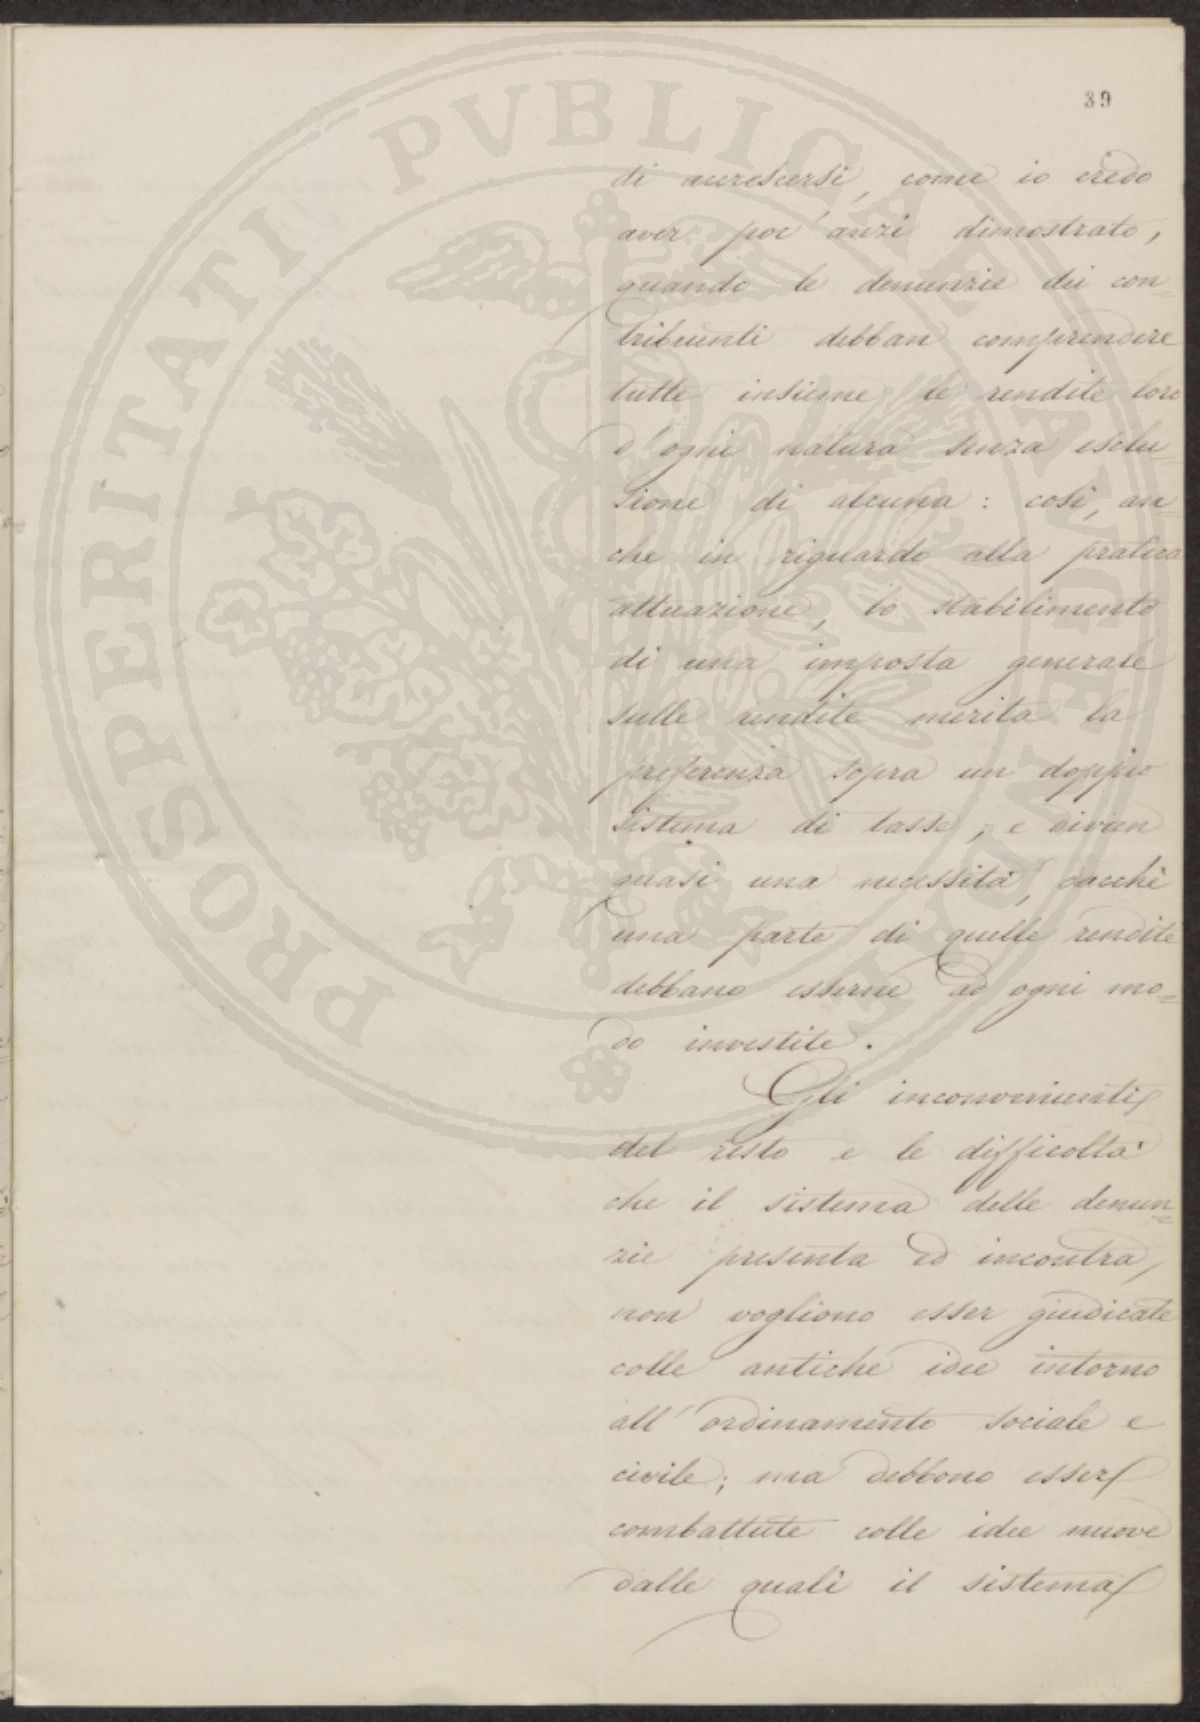 39
di accrescersi, come io credo
aver poc'anzi dimostrato,
quando le denunzie dei con=
tribuenti debban comprendere
tutte insieme le rendite loro
d'ogni natura senza esclu
sione di alcuna: così, an=
che in riguardo alla pratica
attuazione, lo stabilimento
di una imposta generale
sulle rendite merita la
preferenza sopra un doppio
sistema di tasse; e divien
quasi una necessità, dacchè
una parte di quelle rendite
debbano esserne ad ogni mo=
do investite.
Gli inconvenienti
del resto e le difficoltà
che il sistema delle denun=
zie presenta ed incontra,
non vogliono esser giudicate
colle antiche idee intorno
all'ordinamento sociale e
civile; ma debbono esser
combattute colle idee nuove
dalle quali il sistema
PROSPERITATI PVBLICAE AVGENDAE